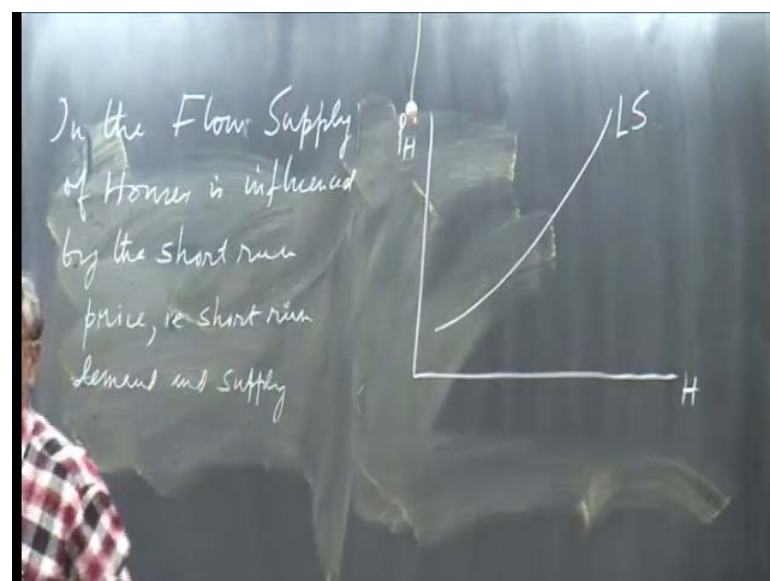 In the Flow Supply
of Houses is influenced
by the short run
price, ie short run
demand and supply
P_H
LS
H